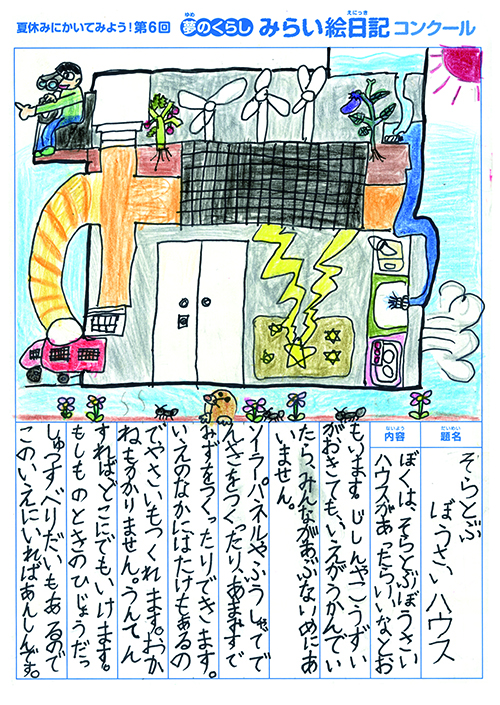 夏休みにかいてみよう！第6回 夢のくらし みらい絵日記コンクール
ゆめ
えにっき
だいめい
題名
そらとぶ
ぼうさいハウス
ないよう
内容
ぼくは、そらとぶぼうさい
ハウスがあったらいいなとお
もいます。じしんやこうずい
がおきても、いえがうかんでい
たら、みんながあぶないめにあ
いません。
ソーラーパネルやふうしゃでで
んきをつくったり、あまみずで
みずをつくったりできます。
いえのなかにはたけもあるの
でやさいもつくれます。おか
ねもかかりません。うんてん
すれば、どこにでも、いけます。
もしものときのひじょうだっ
しゅつすべりだいもあるので
このいえにいればあんしんです。